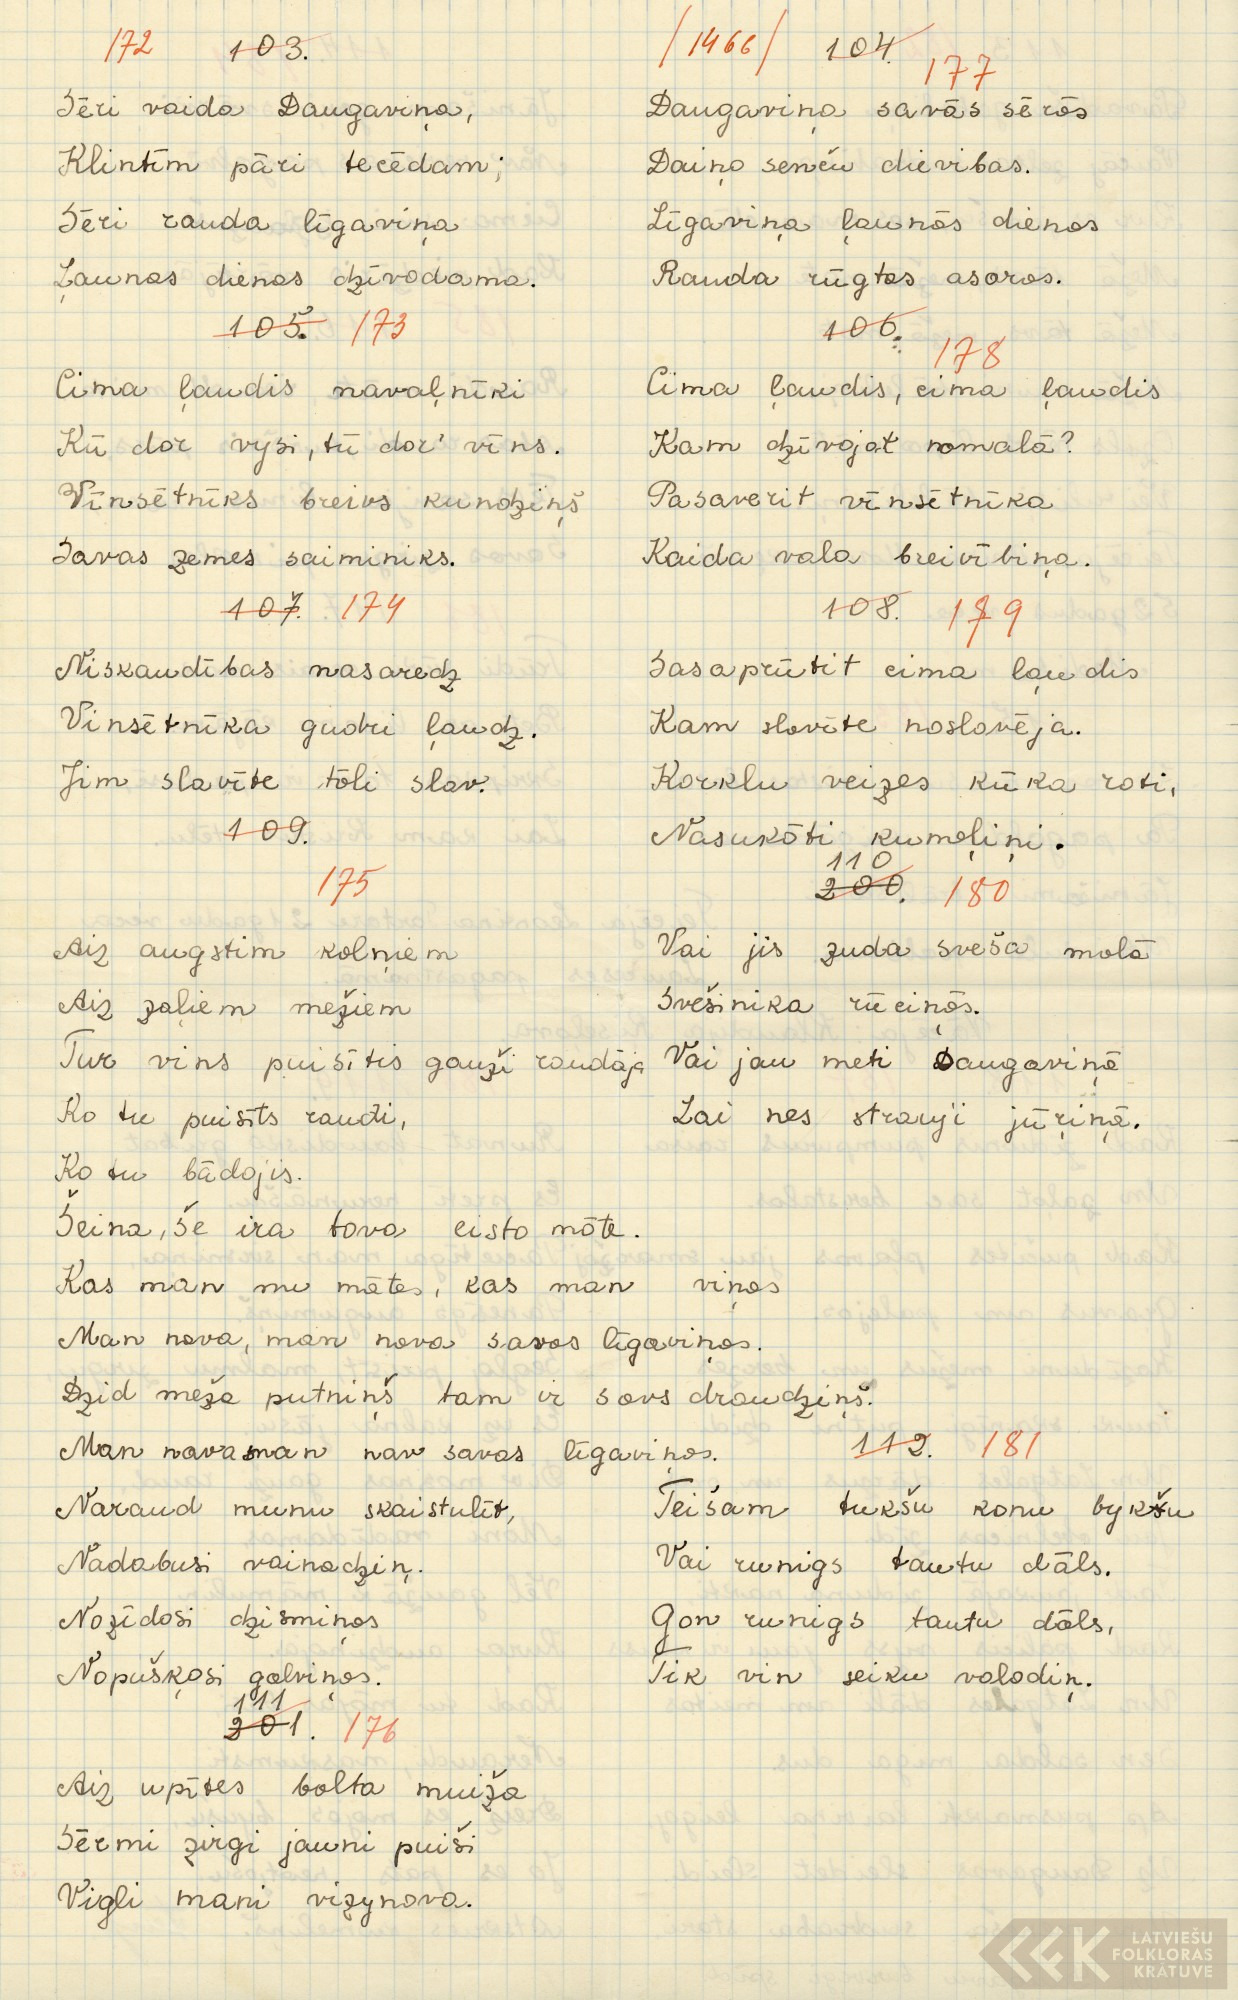 172 103.
Sēri vaida Daugaviņa,
Klintīm pāri tecēdam;
Sēri rauda līgaviņa
Ļaunas dienas dzīvodama.
105. 173
Cima ļaudis navaļnīki
Kū dor vysi, tū dor' vīns.
Vīnsētnīks breivs kundziņš
Savas zemes saiminiks.
107. 174
Niskaudības nasaredz
Vinsētnīka gudri ļaudz.
Jim slavīte tōli slav.
109.
175
Aiz augstim kolņiem
Aiz zaļiem mežiem
Tur vins puisītis gauži raudāja
Ko tu puisīts raudi,
Ko tu bādojis.
Šeina, še ira tova eisto mōte.
Kas man nu mātes, kas man viņos
Man nova, man nova savos līgaviņos.
Dzid meža putniņš tam ir sovs draudziņš.
Man nava man nav savas līgaviņos.
Naraud munu skaistulīt,
Nadabusi vainadziņ.
Nozīdosi dzismiņos
Nopuškosi galviņos.
111
201. 176
Aiz upītes bolta muiža
Sērmi zirgi jauni puiši
Vigli mani vizynova.
/1466/ 104.
177
Daugaviņa savās sērōs
Daiņo senču dievibas.
Līgaviņa ļaunōs dienos
Rauda rūgtas asoros.
106.
178
Cima ļaudis, cima ļaudis
Kam dzīvojat nomalā?
Pasaverit vīnsētnīka
Kaida vala breivībiņa.
108. 179
Sasaprūtit cima ļaudis
Kam slavīte noslavēja.
Korklu veizes kūka roti,
Nasukōti kumeļiņi.
110
200. 180
Vai jis zuda sveša molā
Svešinika rūciņōs.
Vai jau meti Daugaviņā
Lai nes strauji jūriņā.
112. 181
Teišam tukšu konu bykšu
Vai runigs tautu dāls.
Gon runigs tautu dōls,
Tik vin seiku valodiņ.
LATVIEŠU
FOLKLORAS
KRĀTUVE